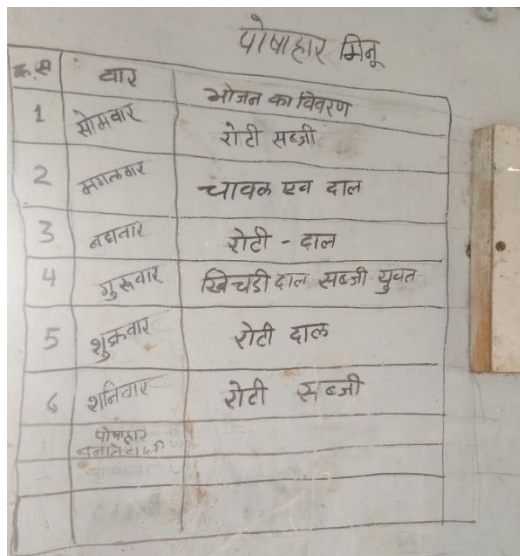 पोषाहार मिनू
क्र.स वार भोजन का विवरण
1 सोमवार रोटी सब्जी
2 मगलवार चावल एव दाल
3 बुधवार रोटी - दाल
4 गुरुवार खिचडी दाल सब्जी युक्त
5 शुक्रवार रोटी दाल
6 शनिवार रोटी सब्जी
पोषाहार